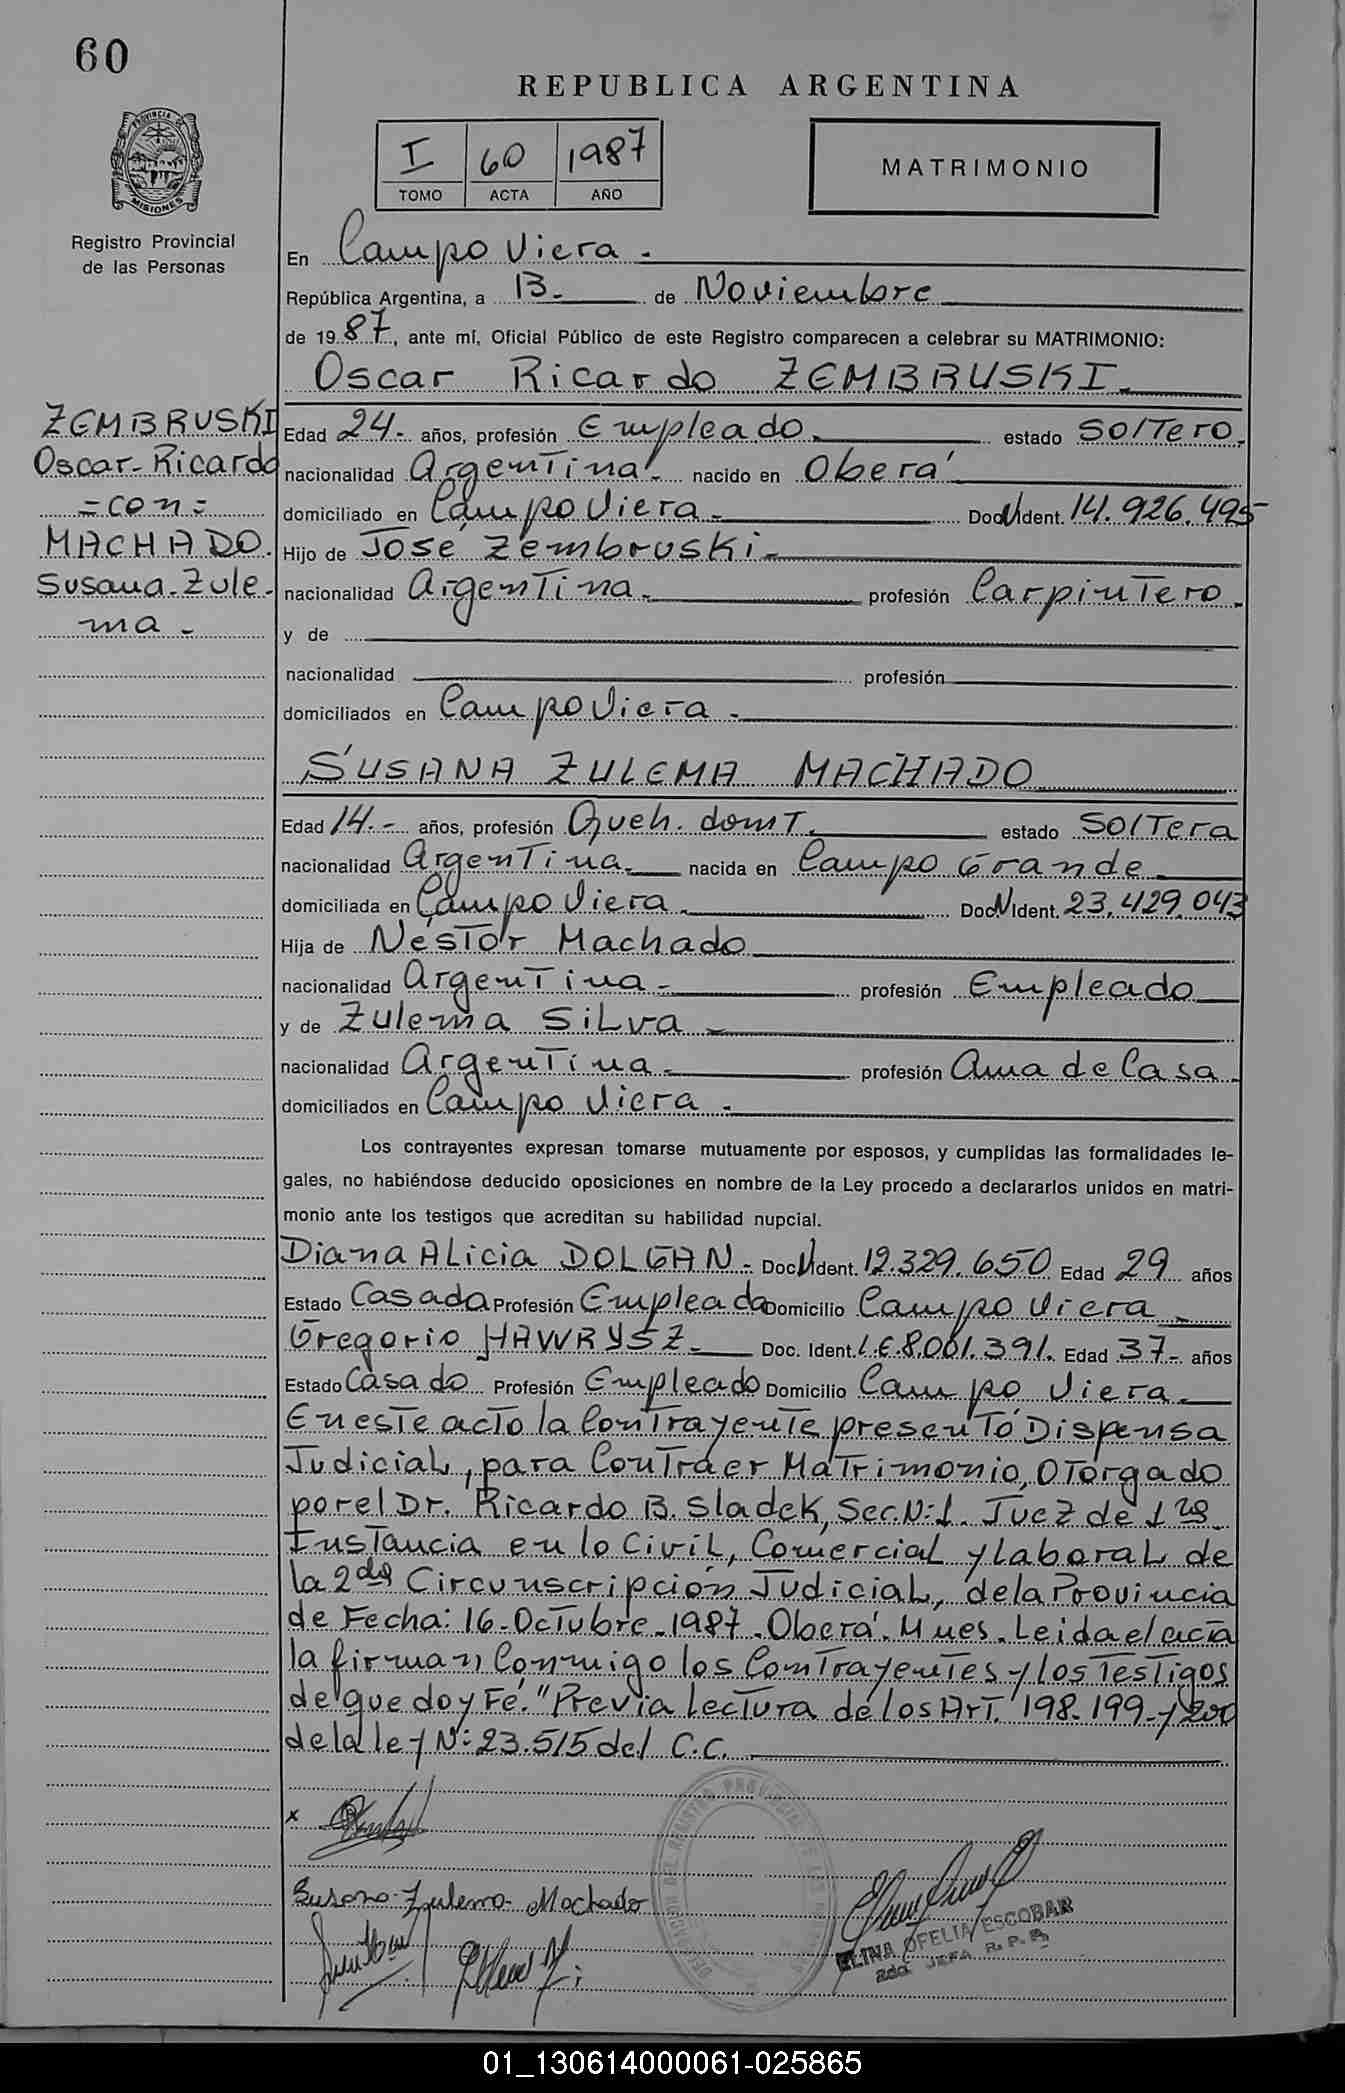 60
REPUBLICA ARGENTINA
PROVINCIA DE
MISIONES
I 60 1987
TOMO ACTA AÑO
MATRIMONIO
Registro Provincial
de las Personas
En Campo Viera.
República Argentina, a 13. de Noviembre
de 1987, ante mí, Oficial Público de este Registro comparecen a celebrar su MATRIMONIO:
Oscar Ricardo ZEMBRUSKI.
ZEMBRUSKI
Oscar-Ricardo
=con=
MACHADO.
Susana-Zule-
ma.
Edad 24.- años, profesión Empleado. estado Soltero.
nacionalidad Argentina. nacido en Oberá
domiciliado en Campo Viera. Doc. N Ident. 14.926.495
Hijo de José Zembruski.
nacionalidad Argentina. profesión Carpintero.
y de
nacionalidad profesión
domiciliados en Campo Viera.
SUSANA ZULEMA MACHADO
Edad 14.- años, profesión Queh. domt. estado Soltera
nacionalidad Argentina. nacida en Campo Grande
domiciliada en Campo Viera. Doc. N Ident. 23.429.043
Hija de Néstor Machado
nacionalidad Argentina. profesión Empleado
y de Zulema Silva
nacionalidad Argentina. profesión Ama de Casa.
domiciliados en Campo Viera.
Los contrayentes expresan tomarse mutuamente por esposos, y cumplidas las formalidades le-
gales, no habiéndose deducido oposiciones en nombre de la Ley procedo a declararlos unidos en matri-
monio ante los testigos que acreditan su habilidad nupcial.
Diana Alicia DOLGAN. Doc. N Ident. 12.329.650 Edad 29 años
Estado Casada Profesión Empleada Domicilio Campo Viera
Gregorio HAWRYSZ. Doc. Ident. L.E.8.001.391. Edad 37- años
Estado Casado Profesión Empleado Domicilio Campo Viera.
En este acto la Contrayente presentó Dispensa
Judicial, para Contraer Matrimonio, otorgado
por el Dr. Ricardo B. Sladek, Sec. N:1. Juez de 1ra
Instancia en lo Civil, Comercial y Laboral de
la 2da Circunscripción Judicial, de la Provincia
de Fecha: 16-Octubre-1987. Oberá. Mnes. Leida el acta
la firman Conmigo los Contrayentes y los Testigos
de que doy Fé. "Previa Lectura de los Art. 198-199-y 200
de la ley N: 23.515 del C.C.
x
Susana-Zulema-Machado
ELINA OFELIA ESCOBAR
2da. JEFA R. P. P.
01_130614000061-025865